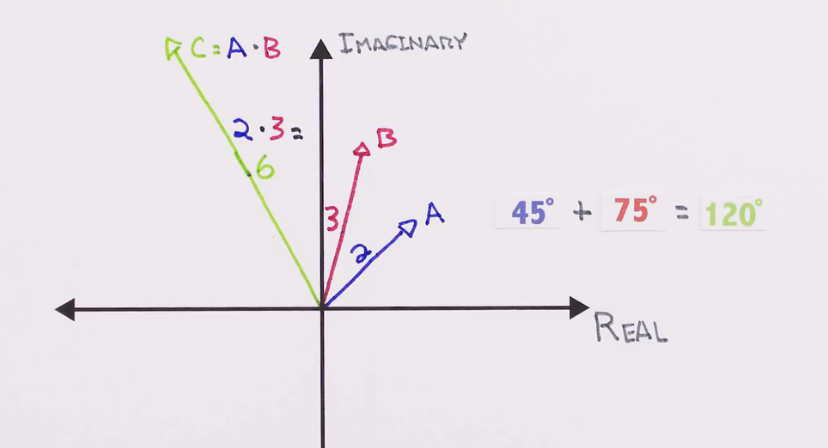 C = A · B
IMAGINARY
2 · 3 =
6
B
3
2
A
45° + 75° = 120°
REAL